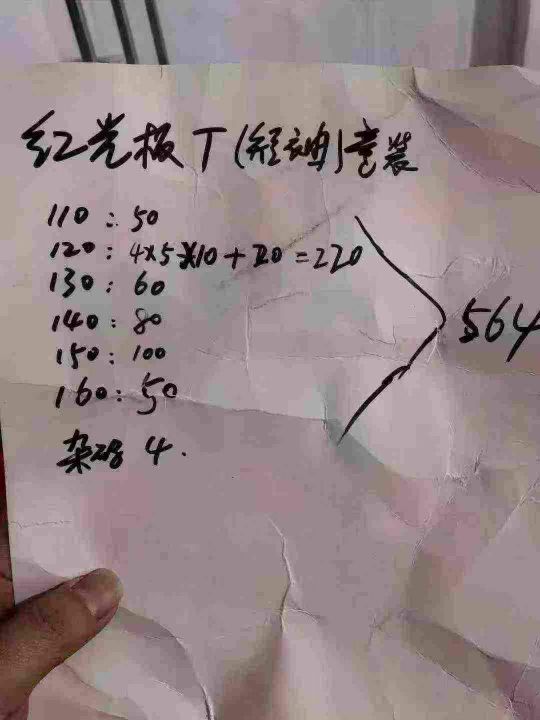 红光板T(短袖)套装
110:50
120:4×5×10+20=220
130:60
140:80
150:100
160:50
杂码 4.
564